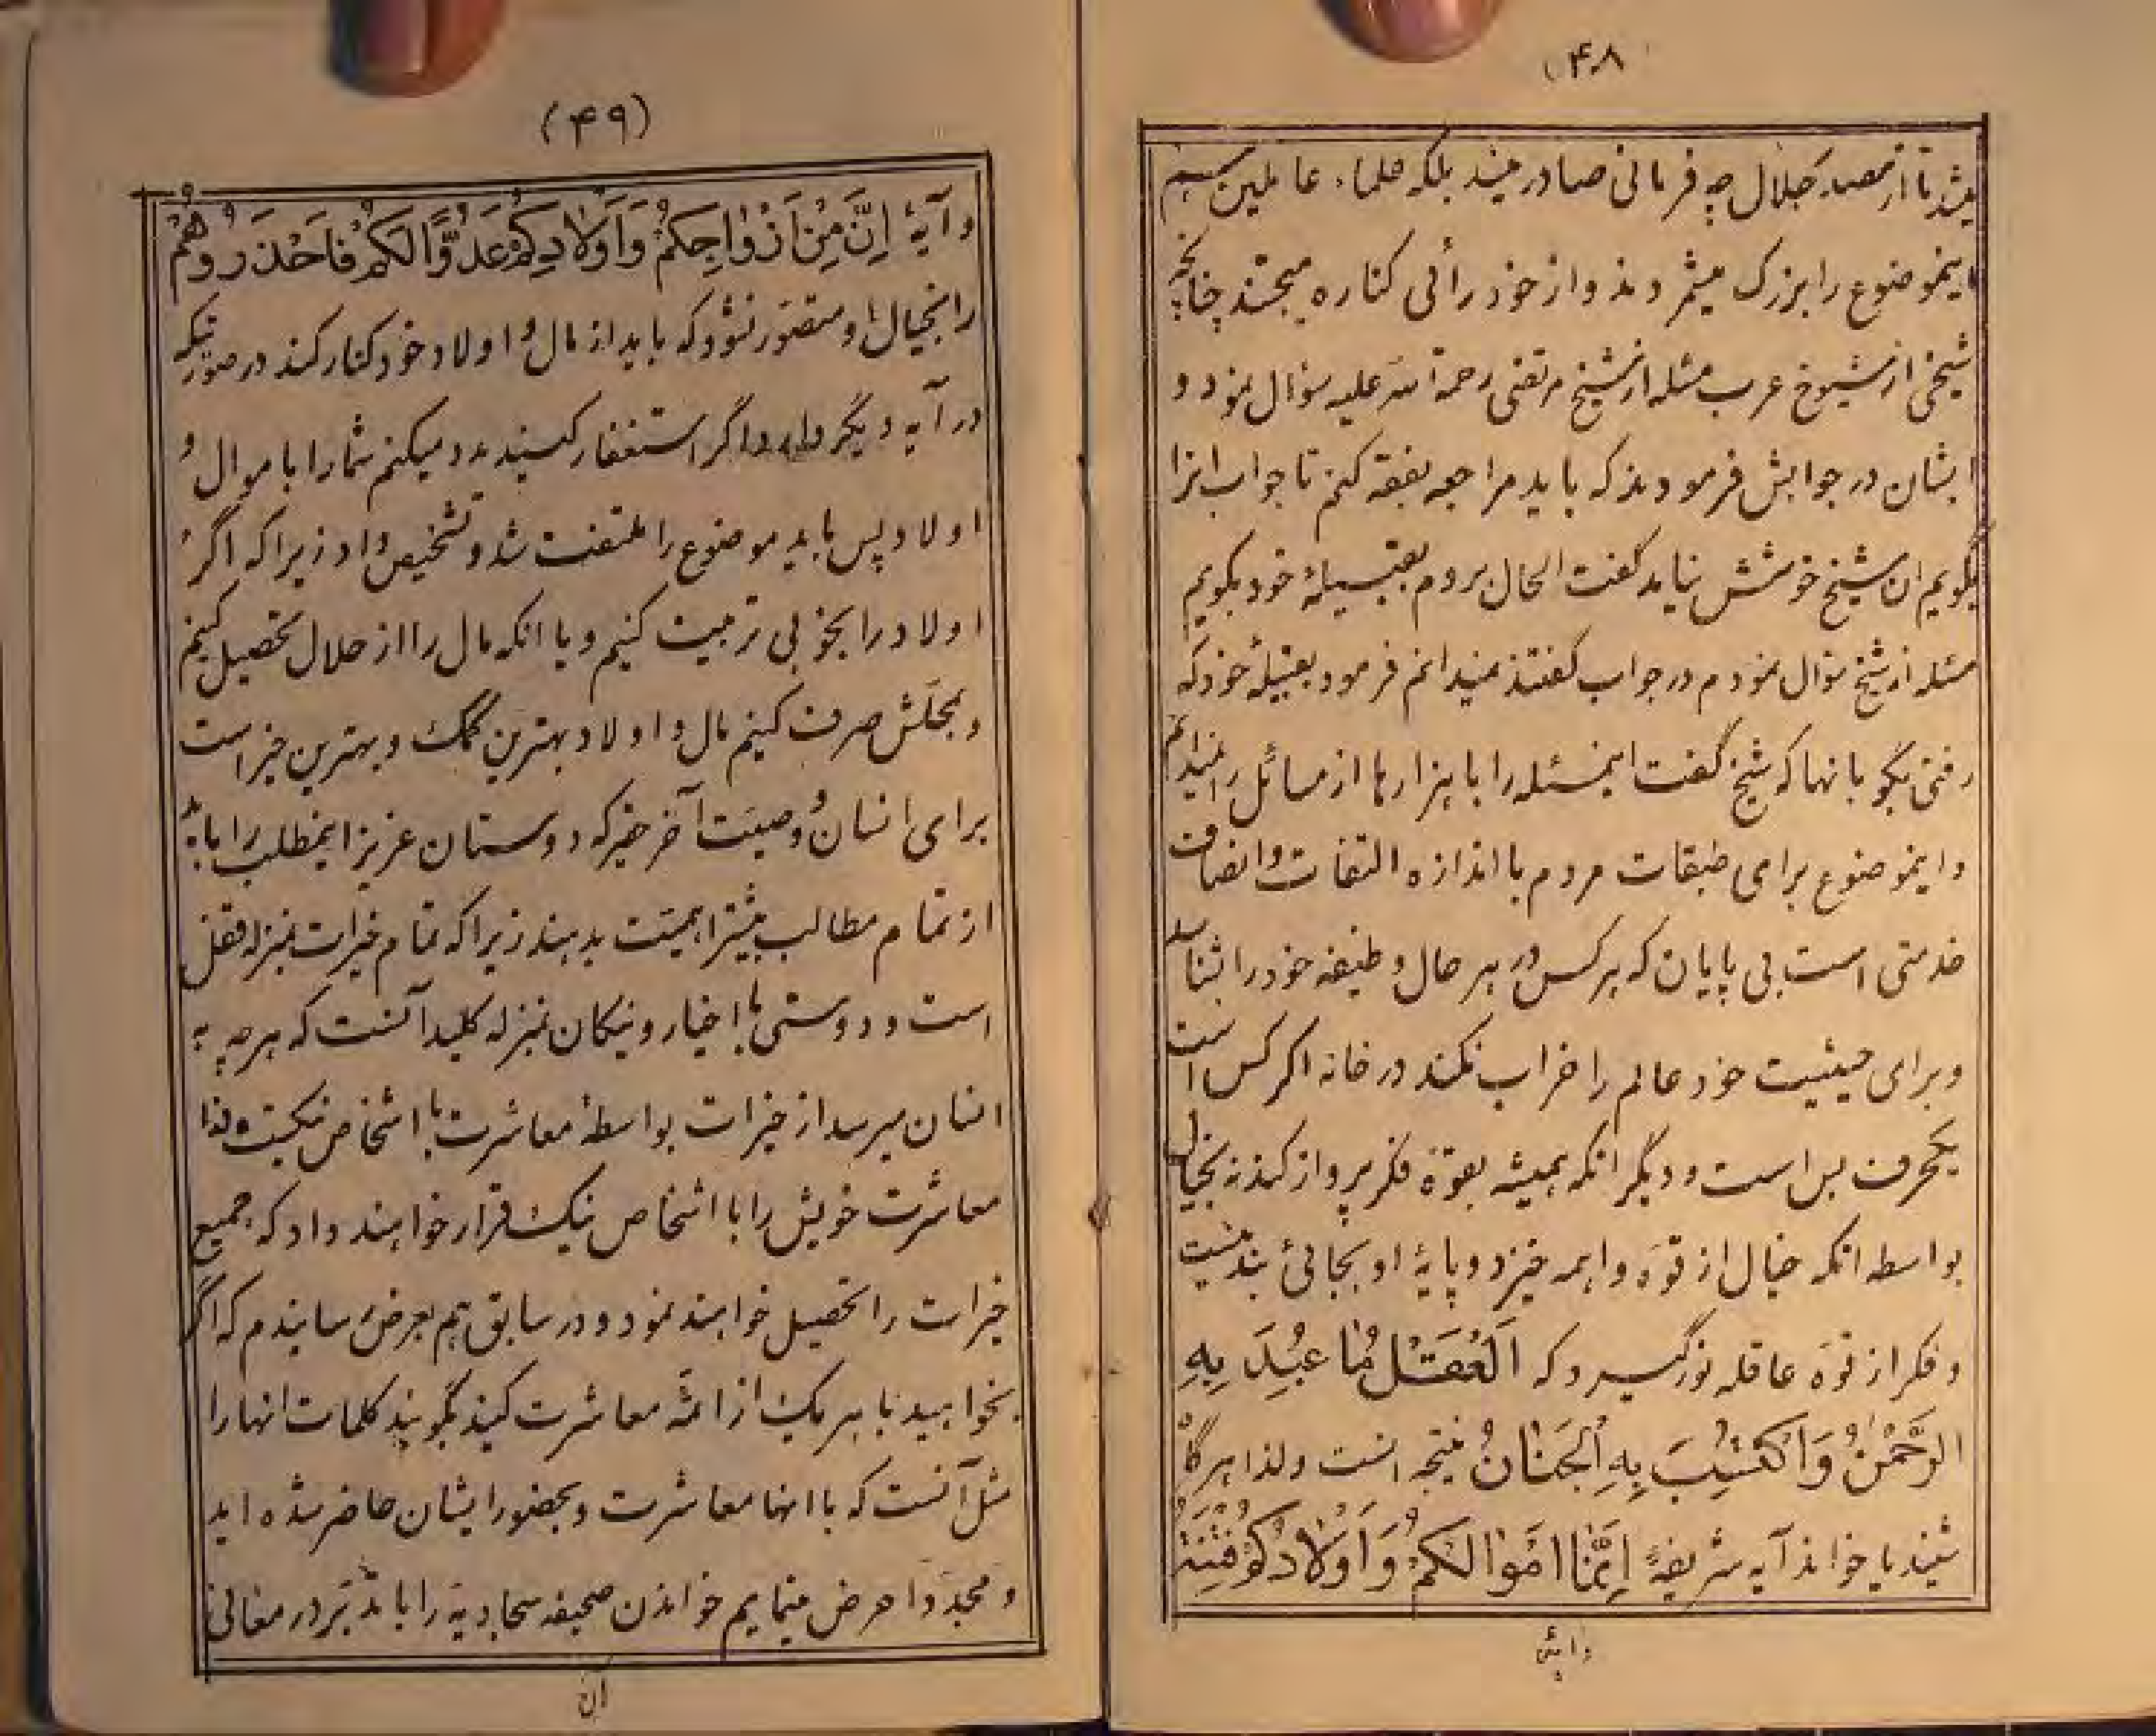 ۴۸
میشد تا از مصدر جلال چه فرمانی صادر میشد بلکه علماء عاملین
اینموضوع را بزرک میشمردند و از خود رأئی کناره میجستند چنانچه
شیخی از شیوخ عرب مسئله از شیخ مرتضی رحمة الله علیه سؤال نمود و
ایشان در جوابش فرمودند که باید مراجعه بفقه کنم تا جواب انرا
بگویم ان شیخ خوشش نیامد گفت الحال بروم بقبیلهٔ خود بگویم
مسئله از شیخ سؤال نمودم در جواب گفتند نمیدانم فرمود بقبیلهٔ خود که
رفتی بگو بانها که شیخ گفت اینمسئله را با هزارها از مسائل را نمیدانم
و اینموضوع برای طبقات مردم با اندازه التفات و انصاف
خدمتی است بی پایان که هر کس در هر حال وظیفه خود را بشناسد
و برای حیثیت خود عالم را خراب نکند در خانه اگر کس است
یکحرف بس است و دیگر انکه همیشه بقوّهٔ فکر پرواز کند نه بخیال
بواسطه انکه خیال از قوّه واهمه خیزد و پایهٔ او بجائی بند نیست
و فکر از قوّه عاقله نور گیرد که اَلْعَقْلُ مٰا عُبِدَ بِهِ
الرَّحْمٰنُ وَاكْتُسِبَ بِهِ الْجَنٰانُ نتیجه انست و لذا هرگاه
شنید یا خواند آیه شریفهٔ اِنَّمٰا اَمْوٰالُكُمْ وَ اَوْلاٰدُكُمْ فِتْنَةٌ
وآیهٔ
(۴۹)
و آیهٔ اِنَّ مِنْ اَزْوٰاجِكُمْ وَ اَوْلاٰدِكُمْ عَدُوًّا لَكُمْ فَاحْذَرُوهُمْ
را بخیال او متصوّر نشود که باید از مال و اولاد خود کنار کند در صورتیکه
در آیه دیگر دارد اگر استغفار کنید مدد میکنم شما را باموال و
اولاد پس باید موضوع را ملتفت شد و تشخیص داد زیرا که اگر
اولاد را بخوبی تربیت کنیم و یا انکه مال را از حلال تحصیل کنیم
و بمحلّش صرف کنیم مال و اولاد بهترین کمک و بهترین خیر است
برای انسان و وصیّت آخر حقیر که دوستان عزیز اینمطلب را باید
از تمام مطالب بیشتر اهمیّت بدهند زیرا که تمام خیرات بمنزله قفل
است و دوستی با اخیار و نیکان بمنزله کلید آنست که هر چه به
انسان میرسد از خیرات بواسطهٔ معاشرت با اشخاص نیکست لذا
معاشرت خویش را با اشخاص نیک قرار خواهند داد که جمیع
خیرات را تحصیل خواهند نمود و در سابق هم بعرض رسانیدم که اگر
بخواهید با هر یک از ائمّه معاشرت کنید بگویند کلمات انها را
مثل آنست که با انها معاشرت و بحضور ایشان حاضر شده اید
و مجدّداً عرض مینمایم خواندن صحیفه سجادیّه را با تدبّر در معانی
ان